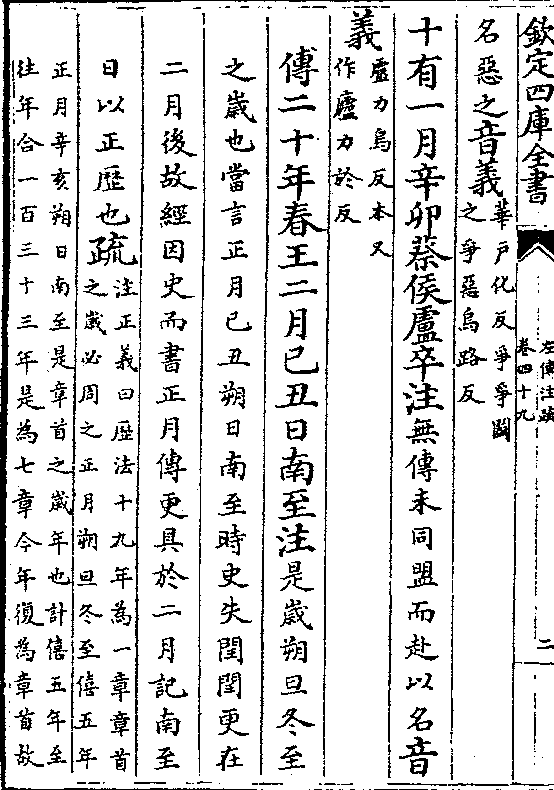 欽定四庫全書
左傳注疏
卷四十九
二
名惡之音義
華戶化反爭爭鬬
之爭惡烏路反
十有一月辛卯蔡侯廬卒注無傳未同盟而赴以名音
義
盧力烏反本又
作廬力於反
傳二十年春王二月己丑日南至注是歲朔旦冬至
之歲也當言正月己丑朔日南至時史失閏閏更在
二月後故經因史而書正月傳更具於二月記南至
日以正歴也疏
注正義曰歴法十九年為一章章首
之歲必周之正月朔旦冬至僖五年
正月辛亥朔日南至是章首之歲年也計僖五年至
往年合一百三十三年是為七章今年復為章首故